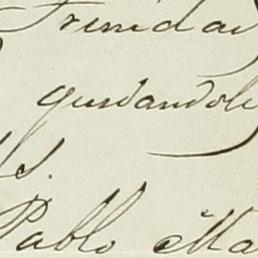 Trinidad
quedandole
Ls.
Pablo Ma